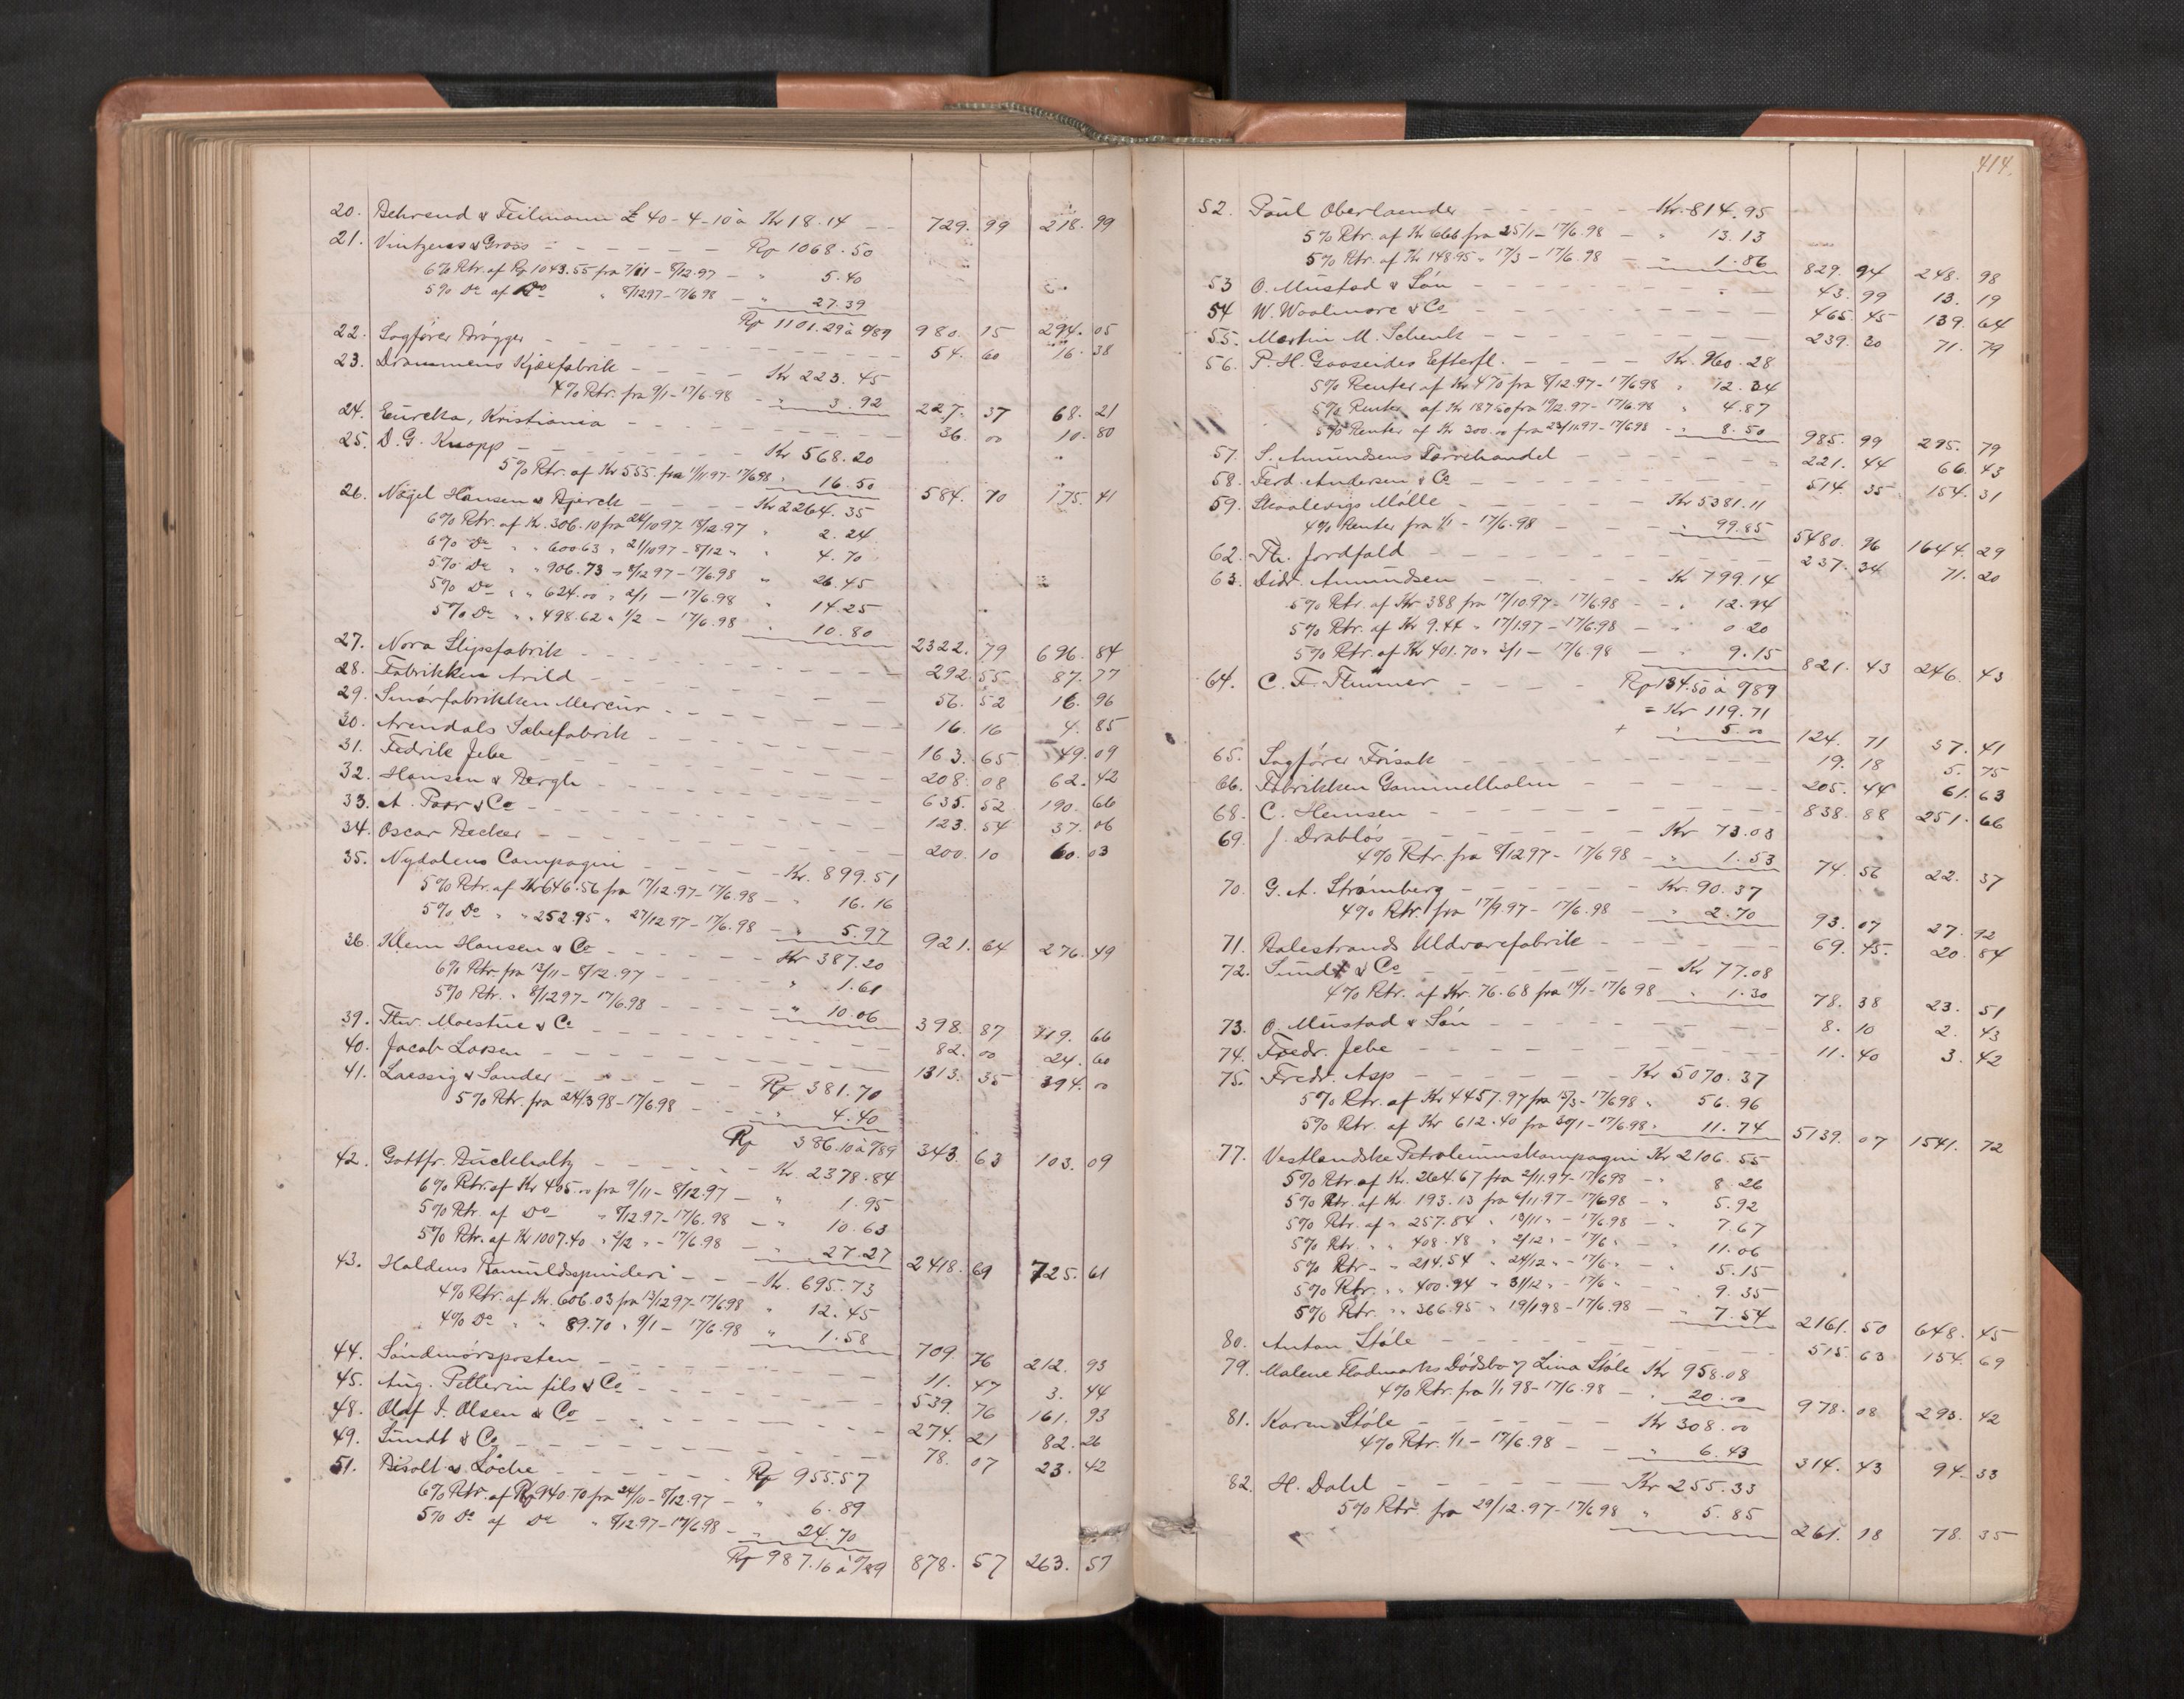 20. Behrend & Feilmann £ 40-4-10 à Kr 18.14 - - 729. 99 218. 99
21. Vintzens & Gross - - - - Rp 1068.50
6% Rtr. af Rp 1043.55 fra 7/11 - 8/12.97 - " 5.40
5% Do af Do " 8/12.97 - 17/6.98 - " 27.39
Rp 1101.29 à 0/89 980. 15 294. 05
22. Sagfører Brøgger - - - - 54. 60 16. 38
23. Drammens Kjæxfabrik - - - - Kr 223.45
4% Rtr. fra 9/1 - 17/6.98 - " 3.92 227. 37 68. 21
24. Eureka, Kristiania - - - - 36. 00 10. 80
25. D. G. Knopp - - - - Kr 568.20
5% Rtr. af Kr 555. fra 11/11 97 - 17/6 98 " 16.50 584. 70 175. 41
26. Nagel Hansen & Bjerck - - - Kr 2264.35
6% Rtr. af Kr. 306.10 fra 24/10 97 - 18/12.97 " 2.24
6% Do " " 600.63 " 21/10 97 - 8/12 " " 4.70
5% Do " " 906.73 " 8/12 97 - 17/6.98 " 26.45
5% Do " " 624.00 " 2/1 - 17/6.98 " 14.25
5% Do " " 498.62 " 1/2 - 17/6.98 " 10.80 2322. 79 696. 84
27. Nora Slipsfabrik - - - - 292. 55 87. 77
28. Fabrikken Arild - - - - 56. 52 16. 96
29. Smørfabrikken Mercur - - - - 16. 16 4. 85
30. Arendals Sæbefabrik - - - - 163. 65 49. 09
31. Fedrik Jebe - - - - 208. 08 62. 42
32. Hansen & Bergh - - - - 635. 52 190. 66
33. A. Poor & Co - - - - 123. 54 37. 06
34. Oscar Becker - - - - 200. 10 60. 03
35. Nydalens Compagni - - - - Kr. 899.51
5% Rtr. af Kr 646.56 fra 17/12.97 - 17/6.98 - " 16.16
5% Do " " 252.95 " 27/12 97 - 17/6.98 - " 5.97 921. 64 276. 49
36. Klem Hansen & Co - - - - Kr 387.20
6% Rtr. fra 13/11 - 8/12.97 - - - " 1.61
5% Rtr. " 8/12 97 - 17/6.98 - - - " 10.06 398. 87 119. 66
39. Thv. Moestue & Co - - - - 82. 00 24. 60
40. Jacob Lassen - - - - 1313. 35 394. 00
41. Laessig & Sander - - - - Rp 381.70
5% Rtr. fra 24/3 98 - 17/6.98 - - - " 4.40
Rp 386.10 à 0/89 343. 63 103. 09
42. Gottfr. Buckholtz - - - - Kr. 2378.84
6% Rtr. af Kr 465.00 fra 9/11 - 8/12.97 - " 1.95
5% Rtr. af Do " 8/12.97 - 17/6.98 - " 10.63
5% Rtr. af Kr 1007.40 " 2/12 " - 17/6.98 - " 27.27 2418. 69 725. 61
43. Haldens Bomuldsspinderi - - - Kr. 695.73
4% Rtr. af Kr. 606.03 fra 13/12 97 - 17/6.98 " 12.45
4% Do " " 89.70 " 9/1 - 17/6.98 " 1.58 709. 76 212. 93
44. Søndmørsposten - - - - 11. 47 3. 44
45. Aug. Pellerin fils & Co - - - - 539. 76 161. 93
48. Olaf I. Olsen & Co - - - - 274. 21 82. 26
49. Sundt & Co - - - - 78. 07 23. 42
51. Bisolt & Locke - - - - Rp 955.57
6% Rtr. af Rp 940.70 fra 24/10 - 8/12.97 - " 6.89
5% Do af Do " 8/12.97 - 17/6.98 - " 24.70
Rp 987.16 à 0/89 878. 57 263. 57
414.
52. Paul Oberlaender - - - - Kr. 814.95
5% Rtr. af Kr 666 fra 25/1 - 17/6.98 - " 13.13
5% Rtr. af Kr 148.95 " 17/3 - 17/6.98 - " 1.86 829. 94 248. 98
53 O. Mustad & Søn - - - - 43. 99 13. 19
54 W. Woolmore & Co - - - - 465. 45 139. 64
55. Martin M. Schenk - - - - 239. 30 71. 79
56. P. H. Gaaseides Efterfl. - - - - Kr. 960.28
5% Renter af Kr 470 fra 8/12.97 - 17/6 98 " 12.34
5% Renter af Kr 187.60 fra 10/12.97 - 17/6.98 " 4.87
5% Renter af Kr 300.00 fra 23/11.97 - 17/6 98 - " 8.50 985. 99 295. 79
57. S. Amundsens Farvehandel - - - - 221. 44 66. 43
58. Ferd. Andersen & Co - - - - 514. 35 154. 31
59. Skaalevigs Mølle - - - - Kr 5381.11
4% Renter fra 1/1 - 17/6.98 - - - " 99.85 5480. 96 1644. 29
62. Th. Jordfald - - - - 237. 34 71. 20
63. Didr. Amundsen - - - - Kr 799.14
5% Rtr. af Kr 388 fra 17/10.97 - 17/6.98 - " 12.94
5% Rtr. af Kr 9.44 " 17/1.97 - 17/6.98 - " 0.20
5% Rtr. af Kr 401.70 " 3/1 - 17/6.98 - 9.15 821. 43 246. 43
64. C. F. Thümer - - - - Rp 134.50 à 0/89
= Kr 119.71
+ " 5.00 124. 71 37. 41
65. Sagfører Frisak - - - - 19. 18 5. 75
66. Fabrikken Gammelholm - - - - 205. 44 61. 63
68. C. Hemsen - - - - 838. 88 251. 66
69. J. Drabløs - - - - Kr 73.03
4% Rtr. fra 8/12 97 - 17/6 98 - " 1.53 74. 56 22. 37
70. G. A. Strømberg - - - - Kr. 90.37
4% Rtr. fra 17/9.97 - 17/6.98 - " 2.70 93. 07 27. 92
71. Balestrands Uldvarefabrik - - - - 69. 45. 20. 84
72. Sundt & Co - - - - Kr 77.08
4% Rtr. af Kr. 76.68 fra 14/1 - 17/6 98 " 1.30 78. 38 23. 51
73. O. Mustad & Søn - - - - 8. 10 2. 43
74. Fredr. Jebe - - - - 11. 40 3. 42
75. Fredr. Asp - - - - Kr 5070.37
5% Rtr. af Kr 4457.97 fra 15/3 - 17/6 98 " 56.96
5% Rtr. af Kr 612.40 fra 30/1 - 17/6.98 " 11.74 5139. 07 1541. 72
77. Vestlandske Petroleumskompagni Kr 2106.55
5% Rtr. af Kr. 264.67 fra 2/11.97 - 17/6 98 - " 8.26
5% Rtr. af Kr. 193.13 fra 6/11.97 - 17/6 98 - " 5.92
5% Rtr. af " 257.84 " 13/11 " - 17/6.98 - " 7.67
5% Rtr. " " 408.48 " 2/12 " - 17/6 " - " 11.06
5% Rtr. " " 214.54 " 24/12 " - 17/6 " - " 5.15
5% Rtr. " " 400.94 " 31/12 " - 17/6 " - " 9.35
5% Rtr. " " 366.95 " 19/1 98 - 17/6.98 - " 7.54 2161. 50 648. 45
80. Anton Støle - - - - 515. 63 154. 69
79. Malene Flodmarks Dødsbo v/ Lina Støle Kr 958.08
4% Rtr. fra 1/1 98 - 17/6.98 - " 20.00 978. 08 293. 42
81. Karen Støle - - - - Kr 308.00
4% Rtr. 1/1 - 17/6.98 - - " 6.43 314. 43 94. 33
82. H. Dahl - - - - Kr 255.33
5% Rtr. fra 29/12.97 - 17/6 98 " 5.85 261. 18 78. 35